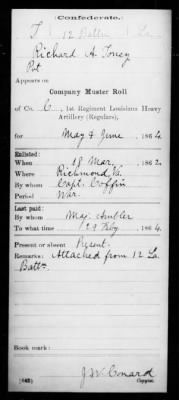 Confederate.
T 12 Battn La
Richard A. Toney
Pvt
Appears on
Company Muster Roll
of Co. C, 1st Regiment Louisiana Heavy
Artillery (Regulars),
for May & June, 1864
Enlisted:
When 18 Mar, 1862.
Where Richmond Va.
By whom Capt. Coffin
Period War.
Last paid:
By whom Maj. Ambler
To what time 29 Feby, 1864.
Present or absent Present.
Remarks: Attached from 12 La
Battn.
Book mark:
J W Conard
(642) Copyist.